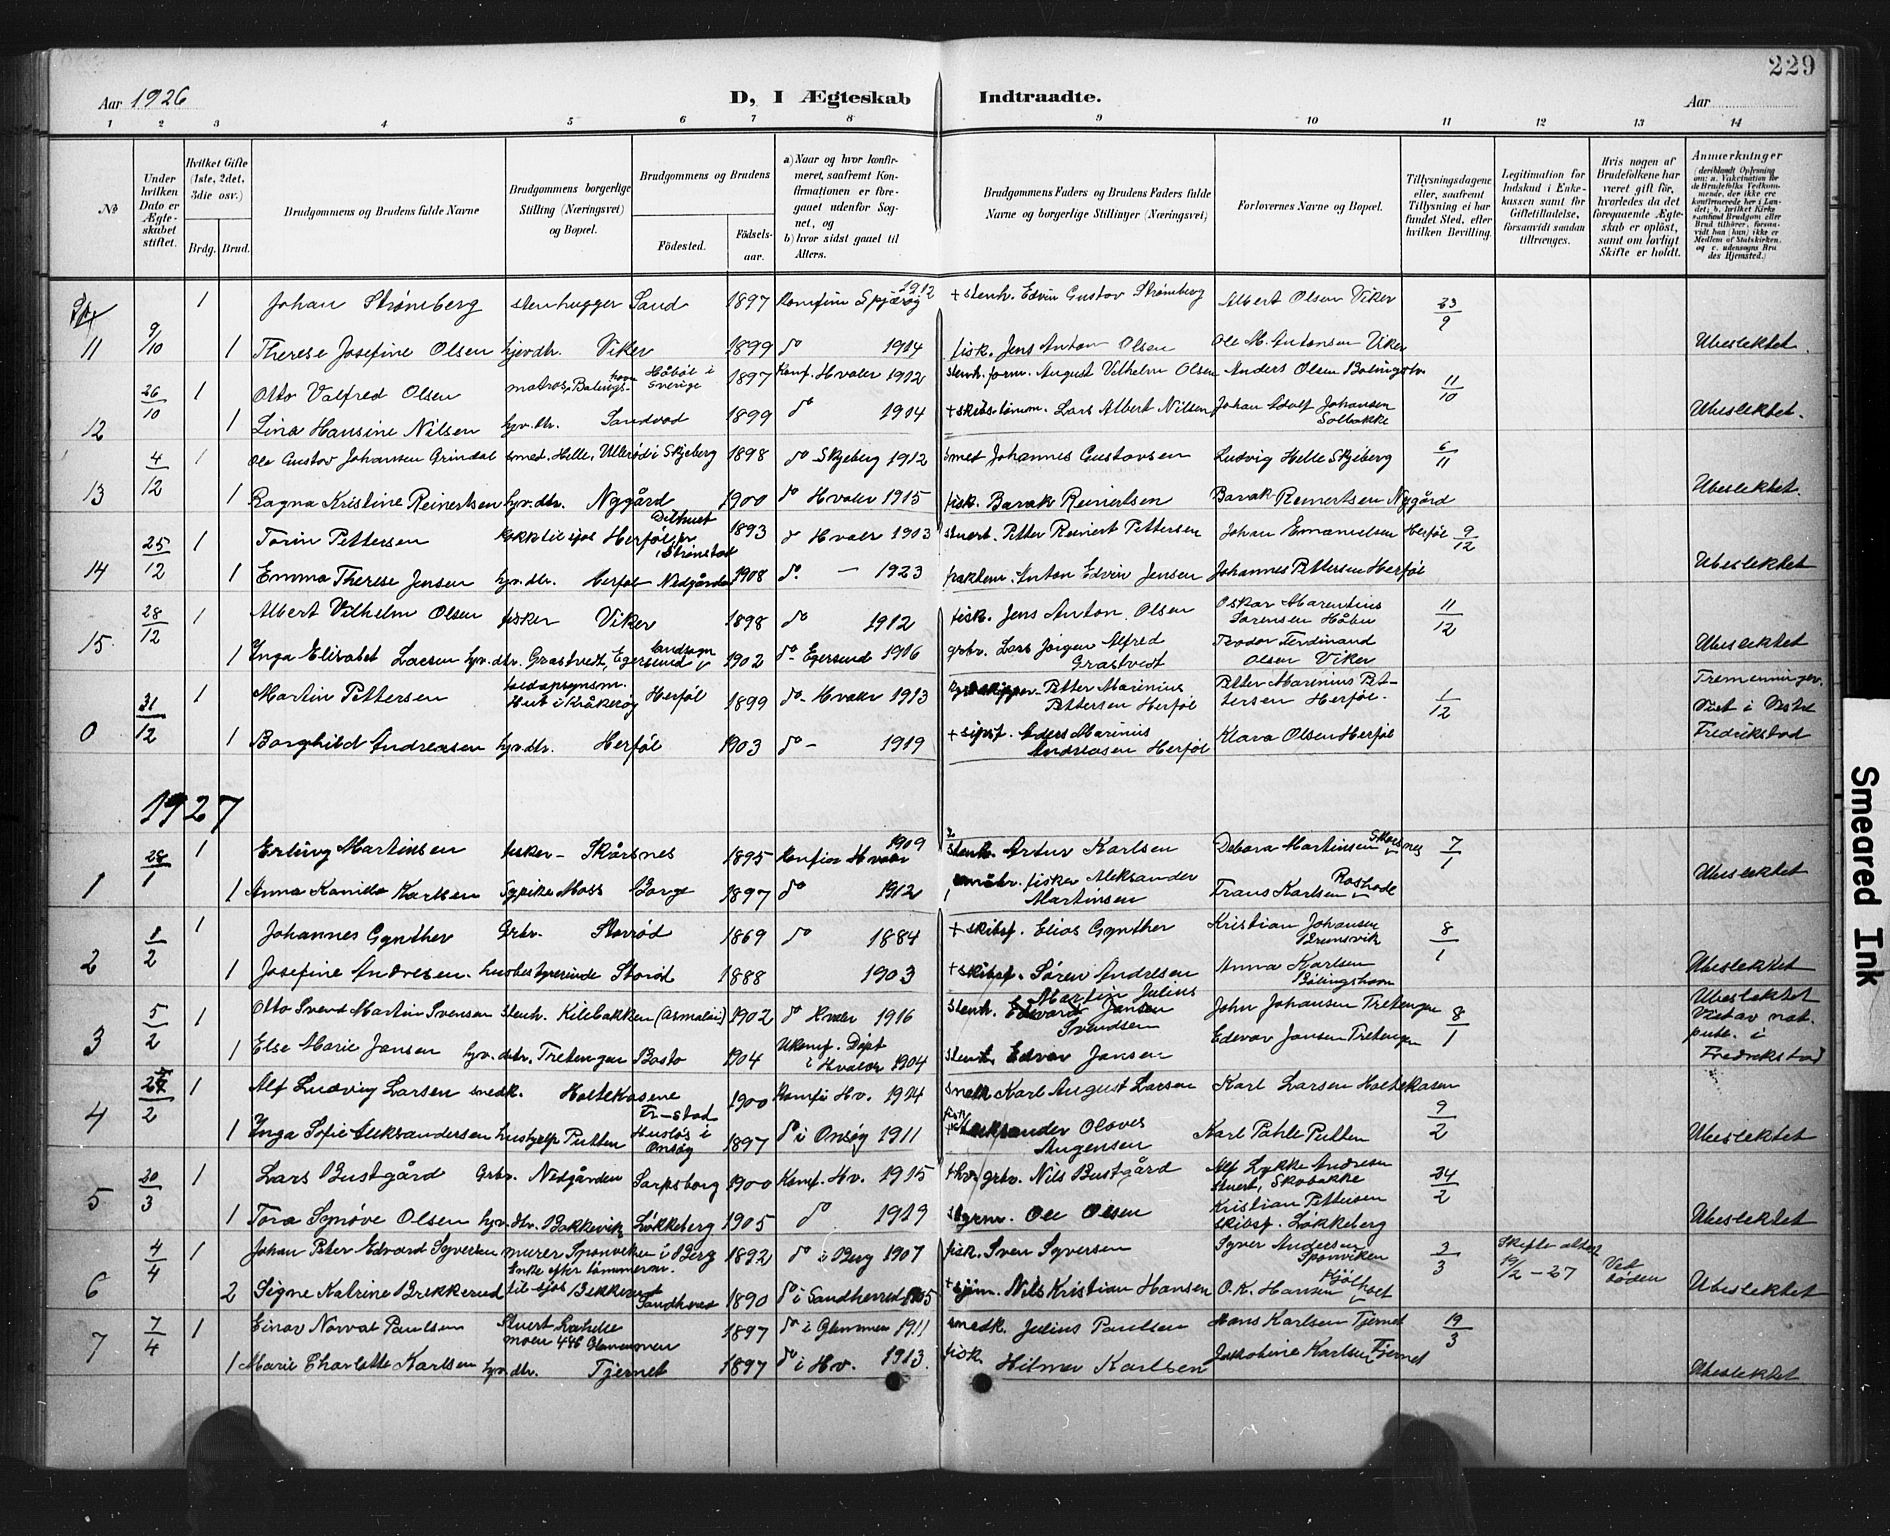 229
Aar 1926
D, I Ægteskab Indtraadte.
Aar
1 2 3 4 5 6 7 8 9 10 11 12 13 14
No
Under hvilken Dato er Ægteskabet stiftet.
Hvilket Gifte (1ste, 2det, 3die osv.)
Brdg. Brud.
Brudgommens og Brudens fulde Navne
Brudgommens borgerlige Stilling (Næringsvei) og Bopæl.
Brudgommens og Brudens
Fødested.
Fødselsaar.
a) Naar og hvor konfirmeret, saafremt Konfirmationen er foregaaet udenfor Sognet, og
b) hvor sidst gaaet til Alters.
Brudgommens Faders og Brudens Faders fulde Navne og borgerlige Stillinger (Næringsvei)
Forlovernes Navne og Bopæl.
Tillysningsdagene eller, saafremt Tillysning ei har fundet Sted, efter hvilken Bevilling.
Legitimation for Indskud i Enkekassen samt for Giftetilladelse, forsaavidt saadan tiltrænges.
Hvis nogen af Brudefolkene har været gift før, hvorledes da det foregaaende Ægteskab er opløst, samt om lovligt Skifte er holdt.
Anmærkninger (deriblandt Oplysning om: a. Vaccination for de Brudefolks Vedkommende, der ikke ere konfirmerede her i Landet; b. hvilket Kirkesamfund Brudgom eller Brud tilhører, forsaavidt han (hun) ikke er Medlem af Statskirken, og c. udensogns Brudes Hjemsted.)
1 Johan Strømberg stenhugger Sand 1897 Konfirm Spjærøy 1912 + stenh. Edvin Gustav Strømberg Albert Olsen Viker 23/9
11 9/10 1 Therese Josefine Olsen hjv.dtr. Viker 1899 do 1914 fisk. Jens Anton Olsen Ole M. Antonsen Viker Ubeslektet.
26/10 1 Otto Valfred Olsen matros, Bølingshavn Håbøl i Sverige 1897 Konf. Hvaler 1912 stenh. form. August Vilhelm Olsen Anders Olsen Bølingshv. 11/10
12 1 Lina Hansine Nilsen hjv. dtr. Sandvad 1899 do 1904 + skibstømm. Lars Albert Nilsen Johan Adolf Johansen Solbakke Ubeslektet.
4/12 1 Ole Gustav Johansen Grindal smed. Helle, Ullerød i Skjeberg 1898 do Skjeberg 1912 smed Johannes Gustavsen Ludvig Helle Skjeberg 6/11
13 1 Ragna Kristine Reinertsen hjv. dtr. Nygård 1900 do Hvaler 1915 fisk. Barak Reinertsen Barak Reinertsen Nygård Ubeslektet.
25/12 1 Torin Pettersen kokk til sjøs Herføl 1893 do Hvaler 1903 stuert. Petter Reinert Pettersen Johan Emanuelsen Herføl 9/12
14 1 Emma Therese Jensen hjv. dtr. Herføl Nedgården 1908 do. — 1923 Anton Edvin Jensen Johannes Pettersen Herføl Ubeslektet
28/12 1 Albert Vilhelm Olsen fisker Viker 1898 do 1912 fisk. Jens Anton Olsen Oskar Marentius Sørensen Håbu 11/12
15. 1 Inga Elisabet Larsen hjv. dtr. Grastvedt, Egersund landsogn 1902 do- Egersund 1916 grbr. Lars Jørgen Alfred Grastvedt Teodor Ferdinand Olsen Viker Ubeslektet
31/12 1 Martin Pettersen Hut i Kråkerøy Herføl 1899 do- Hvaler 1913 Petter Marinius Pettersen Herføl Petter Marinius Pettersen Herføl. 1/12 Tremenninger. Viet i Vestre Fredrikstad
0 1 Borghild Andreasen hjv. dtr. Herføl 1903 do - 1919 Anders Marinius Andreasen Herføl Klara Olsen Herføl
1927
28/1 1 Erling Martinsen fisker - Skårsnes 1895 Konfirm Hvaler 1909 stenh. Artur Karlsen Debora Martinsen Skårsnes 7/1
1 1 Anna Kamilla Karlsen Sypike Moss Borge 1897 do 1912 fisker Aleksander Martinsen Frans Karlsen Roshode Ubeslektet
1/2 1 Johannes Gynther Grbr. Storrød 1869 do 1884 + skibsf. Elias Gynther Kristian Johansen Brensvik 8/1
2 1 Josefine Andresen. husbestyrerinde Storød 1888 1903 + skibsf. Søren Andresen Anna Karlsen Bølingshavn Ubeslektet
5/2 1 Otto Svend Martin Svensen stenh. Kilebakken (Asmaløi) 1902 do Hvaler 1916 stenh. Martin Julius Svendsen John Johansen Tretengen 8/1 Ubeslektet Viet av not. publ. i Fredrikstad
3 1 Else Marie Jansen hjv. dtr. Tretengen Basto 1904 Ukonf. Døpt i Hvaler 1904 stenh. Edvar Jansen Edevar Jansen Tretengen
2/2 1 Alf Ludvig Larsen snedk. Holtekasene Fr-stad 1900 Konfi Hv. 1914 snedk Karl August Larsen Karl Larsen Holtekasen 9/2
4 1 Inga Sofie Aleksandersen hushjelp Putten Husløs i Onsøy 1897 do i Onsøy 1911 Aleksander Olaves Augensen Karl Pahle Putten Ubeslektet
20/3 1 Lars Bustgård Grbr. Nedgården Sarpsborg 1900 Konf. Hv. 1915 grbr. Nils Bustgård Alf Lykke Andresen stuert, Skobakke 24/2
5 1 Tora Synøve Olsen hjv. dtr. Bakkevik Løkkeberg 1905 do 1919 styrm. Ole Olsen Kristian Pettersen skibsf. Løkkeberg Ubeslektet
4/4 1 Johan Peter Edvard Syversen murer Sponviken i Berg 1892 do i Berg 1907 fisk. Sven Syversen Syver Andersen Sponviken 3/3 Skifte attest 19/2-27 Ved døden
6 2 Signe Katrine Brekkerud Enke efter tømmerm. til sjøs Bekkerud Sandherred 1890 do i Sandherred 1905 + sjøm. Nils Kristian Hansen O. K. Hansen Kjølholt Ubeslektet
7/4 1 Einar Norval Paulsen Stuert Lahelle moen 446 Glemmen 1897 do i Glemmen 1911 snedk. Julius Paulsen Hans Karlsen Tjernet 19/3
7 1 Marie Charlotte Karlsen hjv. dtr. Tjernet 1897 do i Hv. 1913. fisk. Hilmer Karlsen Jakobine Karlsen Tjernet Ubeslektet
Smeared Ink